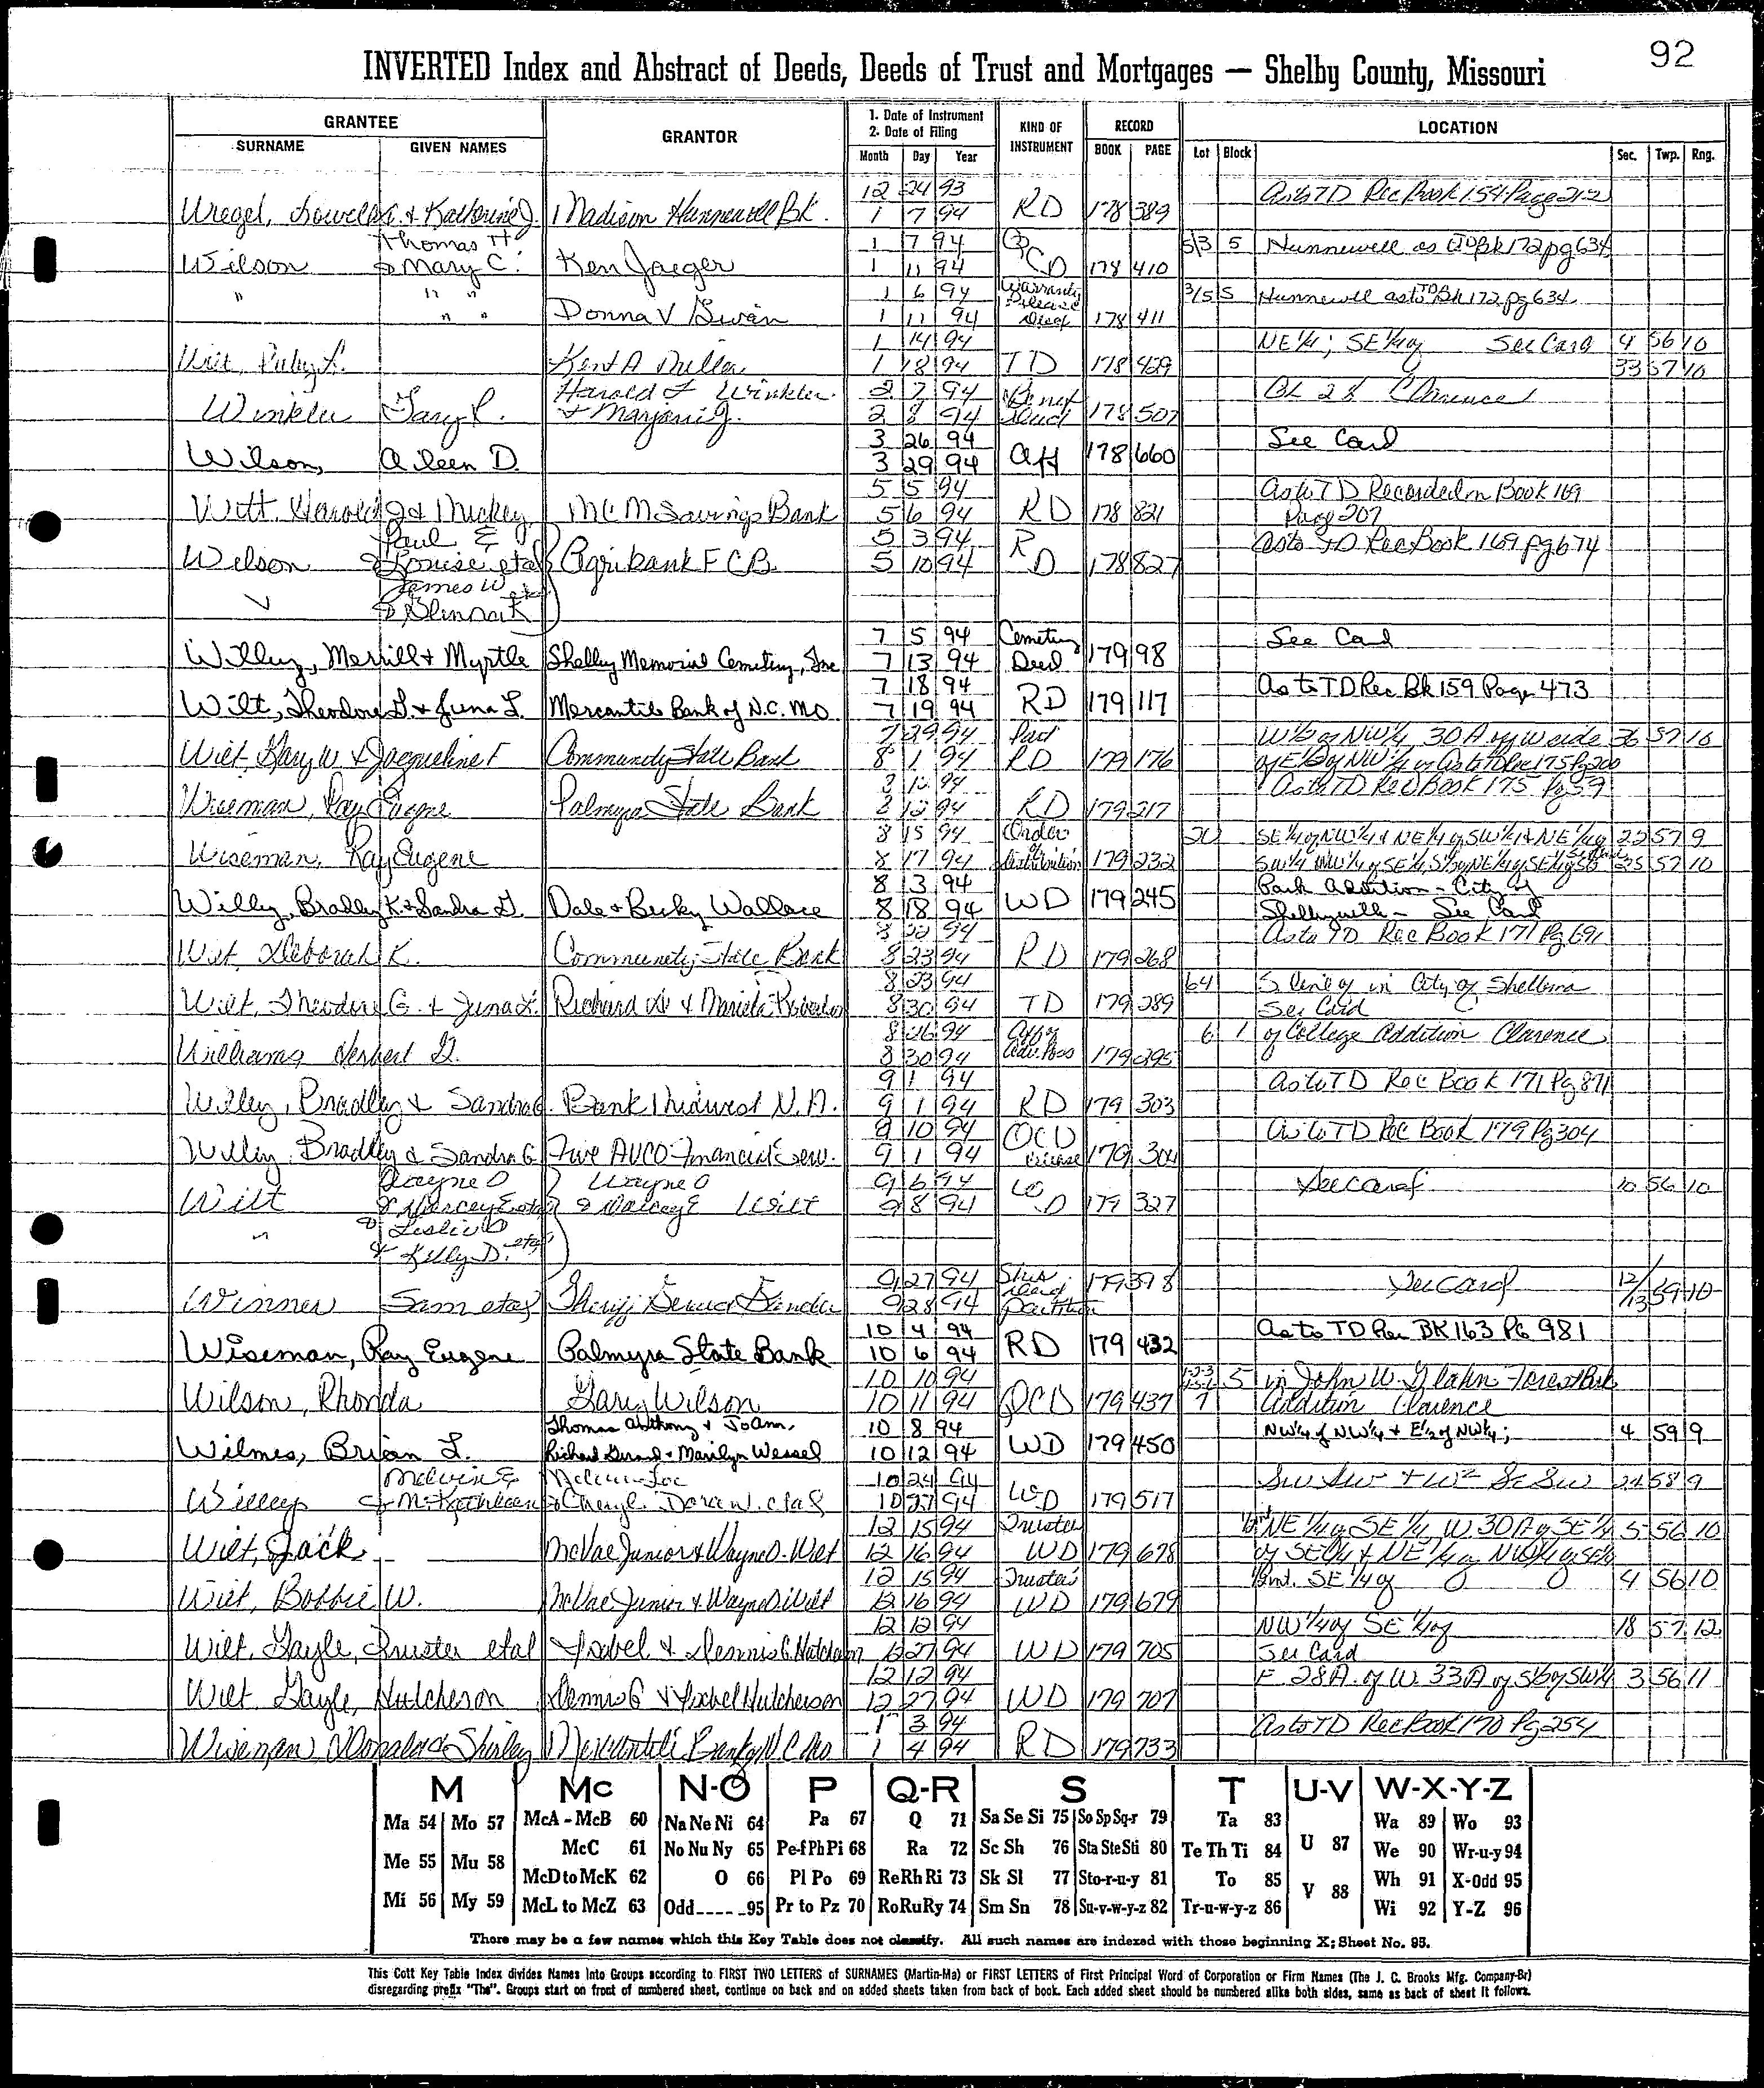 92
INVERTED Index and Abstract of Deeds, Deeds of Trust and Mortgages — Shelby County, Missouri
GRANTEE GRANTOR 1. Date of Instrument 2. Date of Filing KIND OF INSTRUMENT RECORD LOCATION
SURNAME GIVEN NAMES Month Day Year BOOK PAGE Lot Block Sec. Twp. Rng.
12 24 93 As to TD Rec Book 154 Page 212
Katherine J. Madison Hunnewell Bk. 1 7 94 RD 178 389
Thomas H 1 7 94 Q 5 Hunnewell as to TD Bk 172 pg 634
Wilson & Mary C. Ken Jaeger 1 11 94 CD 178 410
" " " 1 6 94 Warranty Release 5 Hunnewell as to TD Bk 172 pg 634
" " Donna V 1 11 94 Deed 178 411
1 14 94 NE 1/4; SE 1/4 of See Card 4 56 10
Wilt, Ruby L. Kent A Miller 1 18 94 TD 178 429 33 57 10
Harold F Winkler 2 7 94 Benef Bl 28 Clarence
Winkler Gary L. & Marjorie J. 2 8 94 Deed 178 507
3 26 94 See Card
Wilson, Aileen D. 3 29 94 Aff 178 660
5 5 94 As to TD Recorded in Book 169
Witt, Harold J & Mickey M C M Savings Bank 5 6 94 RD 178 821 Page 207
Paul E 5 3 94 R As to TD Rec Book 169 pg 674
Wilson & Louise etal Agribank F C B. 5 10 94 D 178 827
James W
& Glenna K
7 5 94 Cemetery See Card
Willey, Merrill & Myrtle Shelby Memorial Cemetery, Inc 7 13 94 Deed 179 98
7 18 94 As to TD Rec Bk 159 Page 473
Wilt, Theodore G. & Juna L. Mercantile Bank of N.C. MO 7 19 94 RD 179 117
7 29 94 Part W 1/2 of NW 1/4 30 A of W side 36 57 10
Wilt, Gary W. & Jacqueline F Community State Bank 8 1 94 RD 179 176 of E 1/2 of NW 1/4 as to TD Rec 175 Pg 200
8 12 94 As to TD Rec Book 175 Pg 59
Wiseman, Ray Eugene Palmyra State Bank 8 12 94 RD 179 217
8 15 94 Order 20 SE 1/4 of NW 1/4 & NE 1/4 of SW 1/4 & NE 1/4 of 22 57 9
Wiseman, Ray Eugene 8 17 94 Distribution 179 232 57 10
8 13 94 Park Addition - City of
Willey, Bradley K. & Sandra G. Dale & Becky Wallace 8 18 94 WD 179 245 Shelbyville - See Card
8 22 94 As to TD Rec Book 171 Pg 691
Wilt, Deborah K. Community State Bank 8 23 94 RD 179 268
8 23 94 64 S line of in City of Shelbina
Wilt, Theodore G. & Juna L. Richard & 8 30 94 TD 179 289 See Card
8 26 94 Aff of 6 1 of College Addition Clarence
Williams, Herbert G. 8 30 94 Adv. Poss 179 295
9 1 94 As to TD Rec Book 171 Pg 871
Willey, Bradley & Sandra G. Bank Midwest N.A. 9 1 94 RD 179 303
9 10 94 QCD As to TD Rec Book 179 Pg 304
Willey, Bradley & Sandra G AVCO Financial Serv. 9 1 94 release 179 304
Wayne O Wayne O 9 6 94 W See card 10 56 10
Wilt & Darcey E etal & Darcey E Wilt 9 8 94 D 179 327
" & Leslie D
& Kelly D. etal
9 27 94 Deed 179 398 See Card 12/13 59 10
Winner Sam etal Sheriff 9 28 94 Partition
10 4 94 As to TD Rec BK 163 PG 981
Wiseman, Ray Eugene Palmyra State Bank 10 6 94 RD 179 432
10 10 94 5 in John W. Glahn Forest Park
Wilson, Rhonda Gary Wilson 10 11 94 QCD 179 437 7 Addition Clarence
Thomas Anthony & JoAnn, 10 8 94 NW 1/4 of NW 1/4 & E 1/2 of NW 1/4; 4 59 9
Wilmes, Brian L. Richard Gerard & Marilyn Wessel 10 12 94 WD 179 450
Melvin E 10 24 94 SW SW + W 2 SE SW 24 58 9
Willey & M. Kathleen & Cheryl, etal 10 27 94 WD 179 517
12 15 94 Trustee NE 1/4 of SE 1/4, W. 30 A of SE 1/4 5 56 10
Wilt, Jack McVae Junior & Wayne D. Wilt 12 16 94 WD 179 678 of SE 1/4 & NE 1/4 of NW 1/4 of SE 1/4
12 15 94 Trustee's SE 1/4 of 4 56 10
Wilt, Bobbie W. McVae Junior & Wayne D Wilt 12 16 94 WD 179 679
12 12 94 NW 1/4 of SE 1/4 of 18 57 12
Wilt, Gayle, Trustee etal Isabel & Dennis G. Hutcheson 12 27 94 WD 179 705 See Card
12 12 94 E 28 A. of W. 33 A of S 1/2 of SW 1/4 3 56 11
Wilt Gayle, Hutcheson Dennis G & Isabel Hutcheson 12 27 94 WD 179 707
1 3 94 As to TD Rec Book 170 Pg 254
Donald & Shirley Mercantile Bank of N C Mo 1 4 94 RD 179 733
M Mc N-O P Q-R S T U-V W-X-Y-Z
Ma 54 Mo 57 McA - McB 60 Na Ne Ni 64 Pa 67 Q 71 Sa Se Si 75 So Sp Sq-r 79 Ta 83 Wa 89 Wo 93
Me 55 Mu 58 McC 61 No Nu Ny 65 Pe-f Ph Pi 68 Ra 72 Sc Sh 76 Sta Ste Sti 80 Te Th Ti 84 U 87 We 90 Wr-u-y 94
McD to McK 62 O 66 Pl Po 69 Re Rh Ri 73 Sk Sl 77 Sto-r-u-y 81 To 85 V 88 Wh 91 X-Odd 95
Mi 56 My 59 McL to McZ 63 Odd---- -95 Pr to Pz 70 Ro Ru Ry 74 Sm Sn 78 Su-v-w-y-z 82 Tr-u-w-y-z 86 Wi 92 Y-Z 96
There may be a few names which this Key Table does not classify. All such names are indexed with those beginning X; Sheet No. 95.
This Cott Key Table Index divides Names Into Groups according to FIRST TWO LETTERS of SURNAMES (Martin-Ma) or FIRST LETTERS of First Principal Word of Corporation or Firm Names (The J. C. Brooks Mfg. Company-Br)
disregarding prefix "The". Groups start on front of numbered sheet, continue on back and on added sheets taken from back of book. Each added sheet should be numbered alike both sides, same as back of sheet it follows.